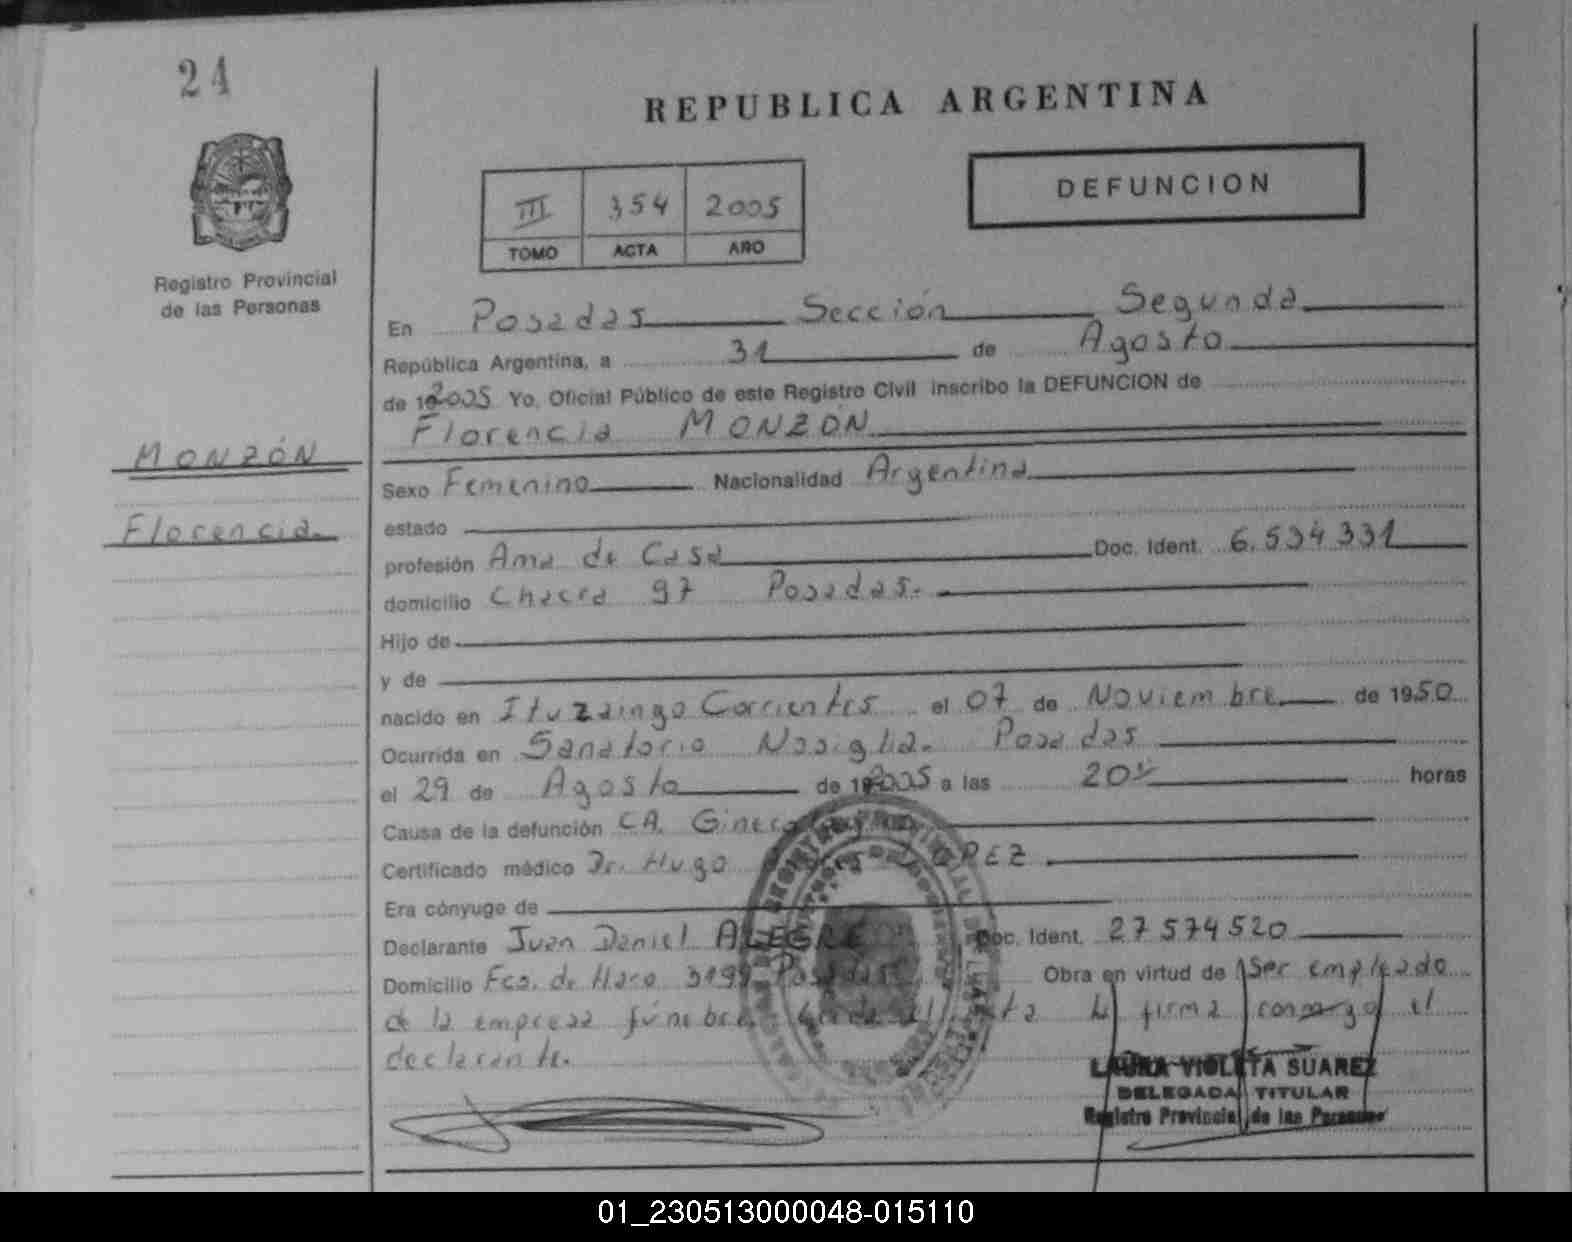 24
REPUBLICA ARGENTINA
III 354 2005
TOMO ACTA AÑO
DEFUNCION
Registro Provincial
de las Personas
En Posadas Sección Segunda
República Argentina, a 31 de Agosto
de 2005 Yo, Oficial Público de este Registro Civil inscribo la DEFUNCION de
Florencia MONZÓN
MONZÓN
Florencia
Sexo Femenino Nacionalidad Argentina
estado
profesión Ama de Casa Doc. Ident. 6.534 331
domicilio Chacra 97 Posadas.
Hijo de
y de
nacido en Ituzaingo Corrientes el 07 de Noviembre de 1950
Ocurrida en Sanatorio Nosiglia. Posadas
el 29 de Agosto de 2005 a las 20 horas
Causa de la defunción CA.
Certificado médico Dr. Hugo
Era cónyuge de
Declarante Juan Daniel ALEGRE Doc. Ident. 27 574 520
Domicilio Fco. de Haro 3199 Posadas Obra en virtud de Ser empleado
de la empresa fúnebre. el acta la firma conmigo el
declarante.
LAURA VIOLETA SUAREZ
DELEGADA TITULAR
Registro Provincial de las Personas
01_230513000048-015110